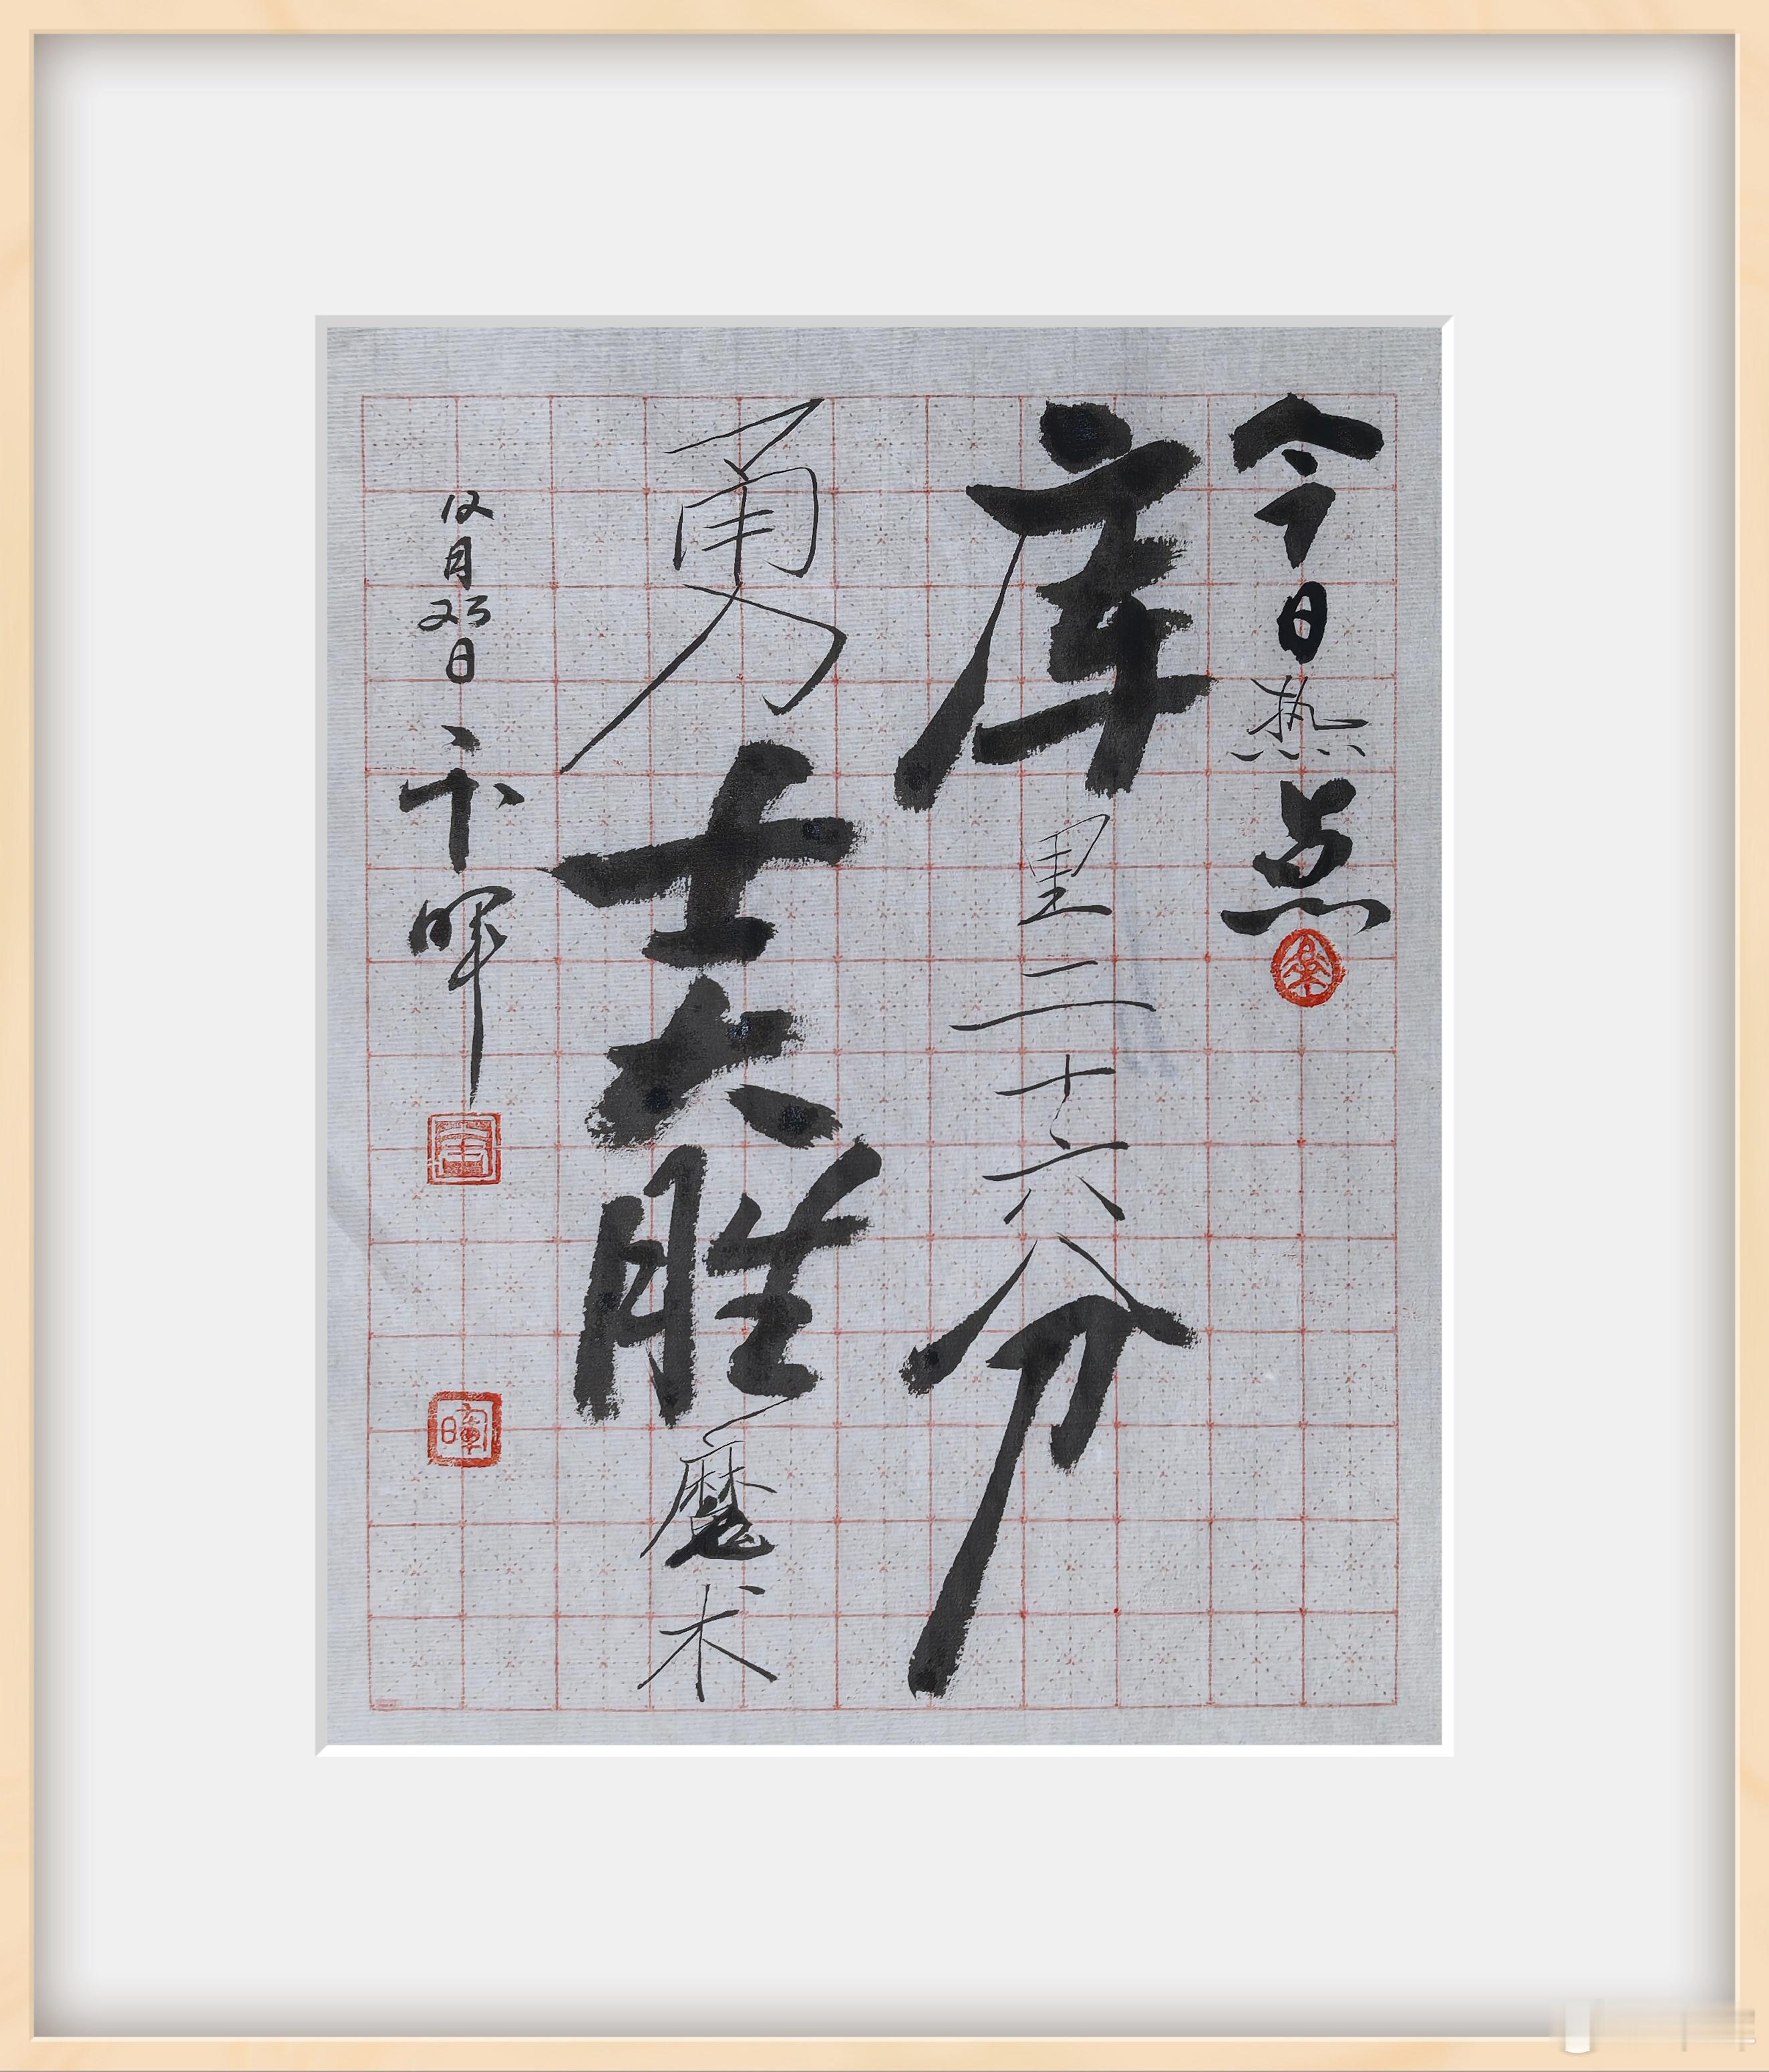 今日热点
库里二十六分
勇士大胜魔术
12月23日 卞晖